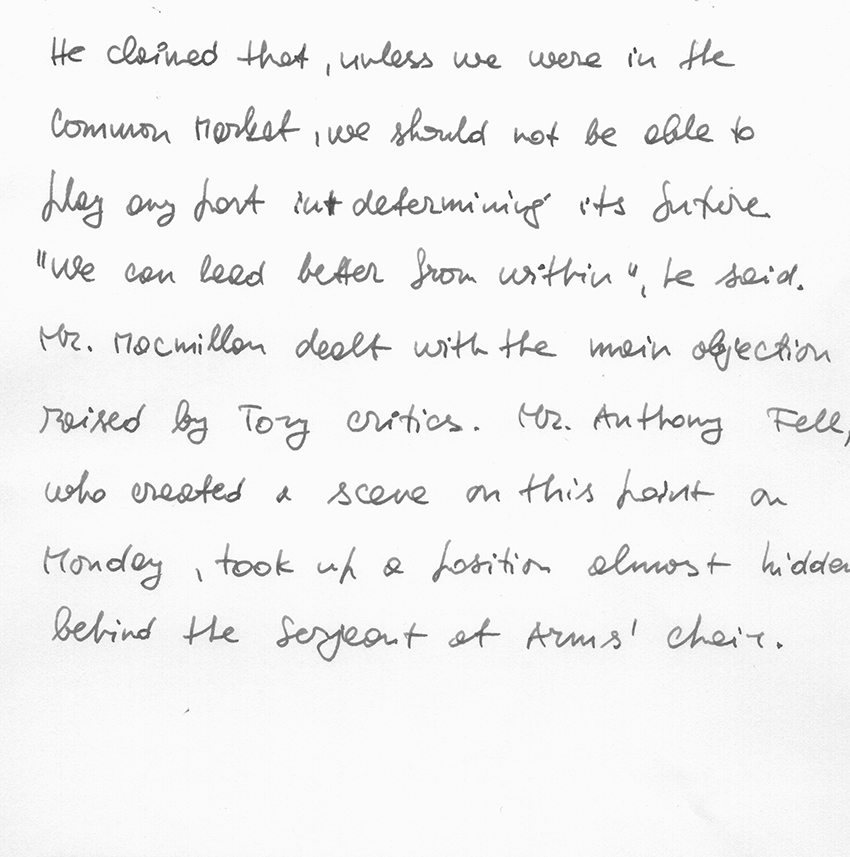 He claimed that, unless we were in the
Common Market, we should not be able to
play any part in determining its future
"We can lead better from within", he said.
Mr. Macmillan dealt with the main objection
raised by Tory critics. Mr. Anthony Fell,
who created a scene on this point on
Monday, took up a position almost hidden
behind the Serjeant at Arms' chair.